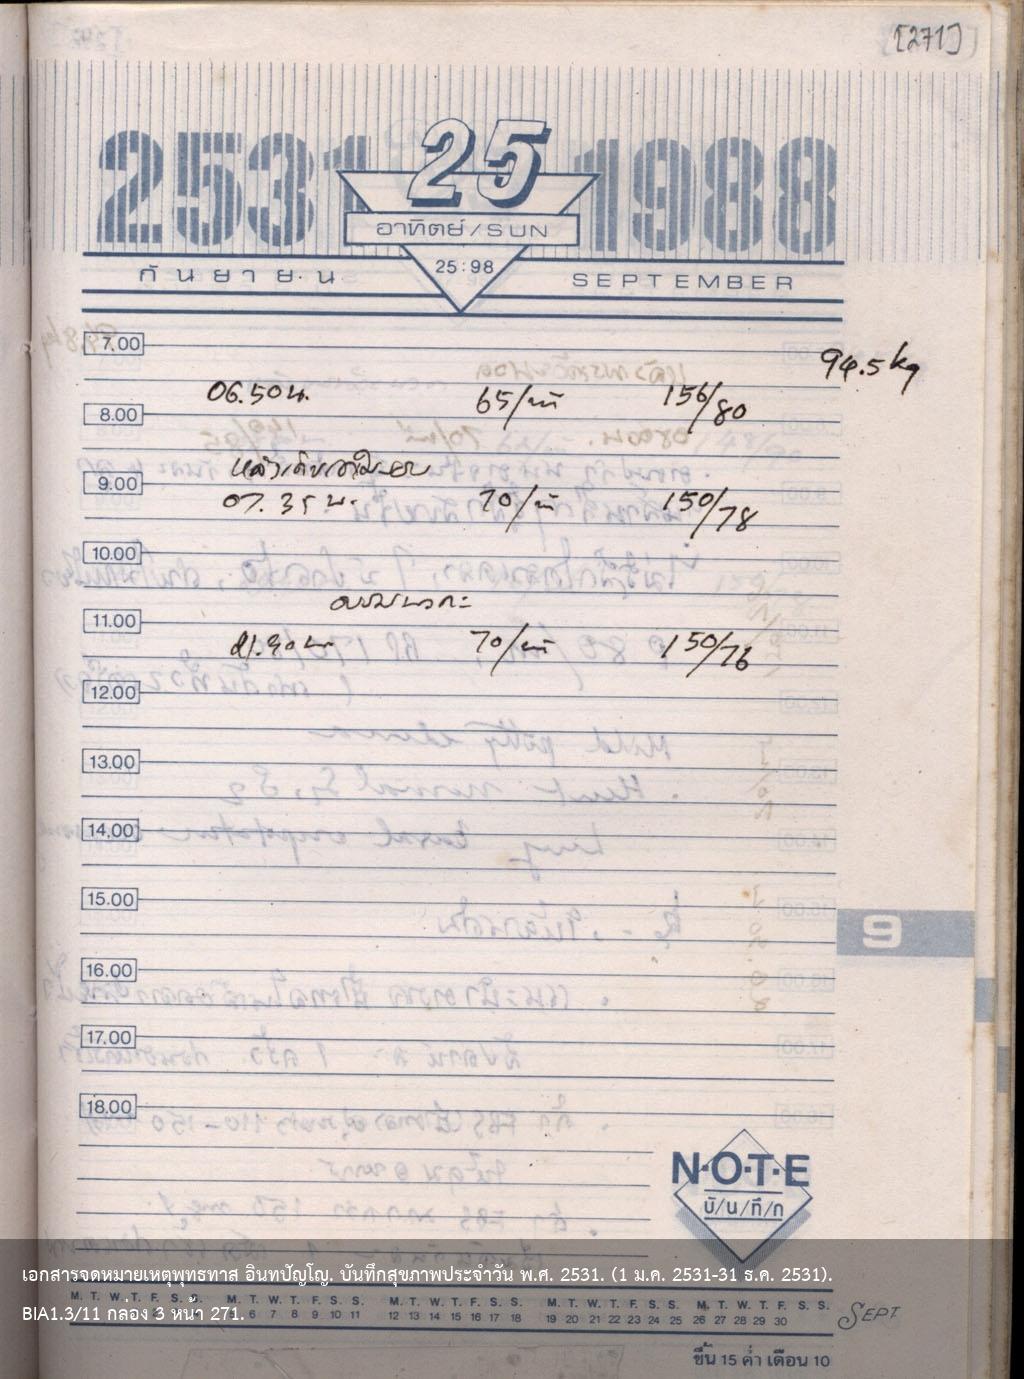 [271]
2531 25 1988
อาทิตย์/SUN
25:98
กันยายน SEPTEMBER
7.00
94.5 kg
06.50น. 65/นาที 156/80
8.00
9.00
07.35 น. 70/นาที 150/78
10.00
11.00
70/นาที 150/76
12.00
13.00
14.00
15.00
9
16.00
17.00
18.00
N·O·T·E
บั/น/ทึ/ก
เอกสารจดหมายเหตุพุทธทาส อินทปัญโญ. บันทึกสุขภาพประจำวัน พ.ศ. 2531. (1 ม.ค. 2531-31 ธ.ค. 2531).
M. T. W. T. F. S. S. M. T. W. T. F. S. S. M. T. W. T. F. S. S. M. T. W. T. F. S. S. M. T. W. T. F. S. S.
BIA1.3/11 กล่อง 3 หน้า 271.
6 7 8 9 10 11 12 13 14 15 16 17 18 19 20 21 22 23 24 25 26 27 28 29 30
SEPT
ขึ้น 15 ค่ำ เดือน 10